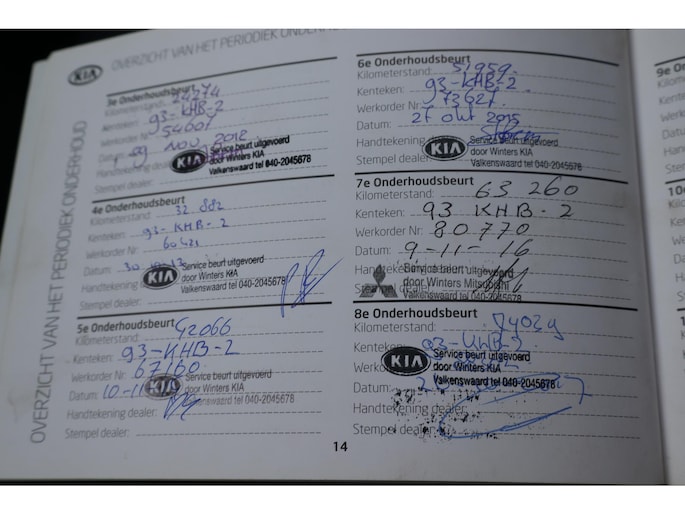 KIA OVERZICHT VAN HET PERIODIEK ONDERHOUD
OVERZICHT VAN HET PERIODIEK ONDERHOUD
3e Onderhoudsbeurt
Kilometerstand:
Kenteken: 93-KHB-2
Werkorder Nr:
09 NOV 2012
Handtekening dealer:
Stempel dealer:
KIA Service beurt uitgevoerd
door Winters KIA
Valkenswaard tel 040-2045678
4e Onderhoudsbeurt
Kilometerstand: 32 882
Kenteken: 93-KHB-2
Werkorder Nr:
Datum:
Handtekening
Stempel dealer:
KIA Service beurt uitgevoerd
door Winters KIA
Valkenswaard tel 040-2045678
5e Onderhoudsbeurt
Kilometerstand: 42066
Kenteken: 93-KHB-2
Werkorder Nr: 67160
Datum: 10-11
Handtekening dealer:
Stempel dealer:
KIA Service beurt uitgevoerd
door Winters KIA
Valkenswaard tel 040-2045678
6e Onderhoudsbeurt
Kilometerstand: 51959
Kenteken: 93-KHB-2
Werkorder Nr: 73627
Datum: 27 okt 2015
Handtekening
Stempel dealer:
KIA Service beurt uitgevoerd
door Winters KIA
Valkenswaard tel 040-2045678
7e Onderhoudsbeurt
Kilometerstand: 63 260
Kenteken: 93 KHB-2
Werkorder Nr: 80770
Datum: 9-11-16
Handtekening dealer:
Service beurt uitgevoerd
door Winters Mitsubishi
Valkenswaard tel 040-2045678
8e Onderhoudsbeurt
Kilometerstand: 74029
Kenteken: 93-KHB-2
Datum:
Handtekening dealer:
Stempel dealer:
KIA Service beurt uitgevoerd
door Winters KIA
Valkenswaard tel 040-2045678
14
9e On
Kilom
Kente
Werko
Datum
Handt
Stemp